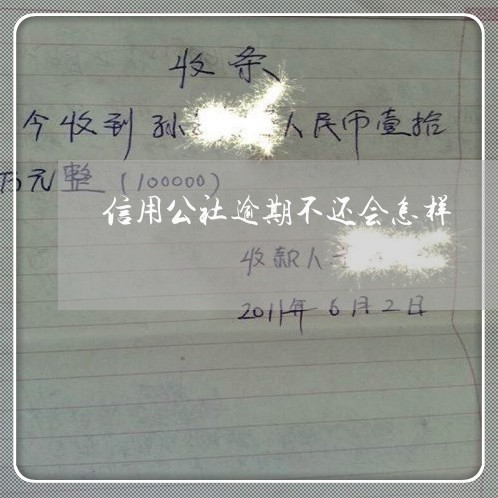 收条
今收到孙 人民币壹拾
万元整(100000)
信用公社逾期不还会怎样
收款人
2011年6月2日